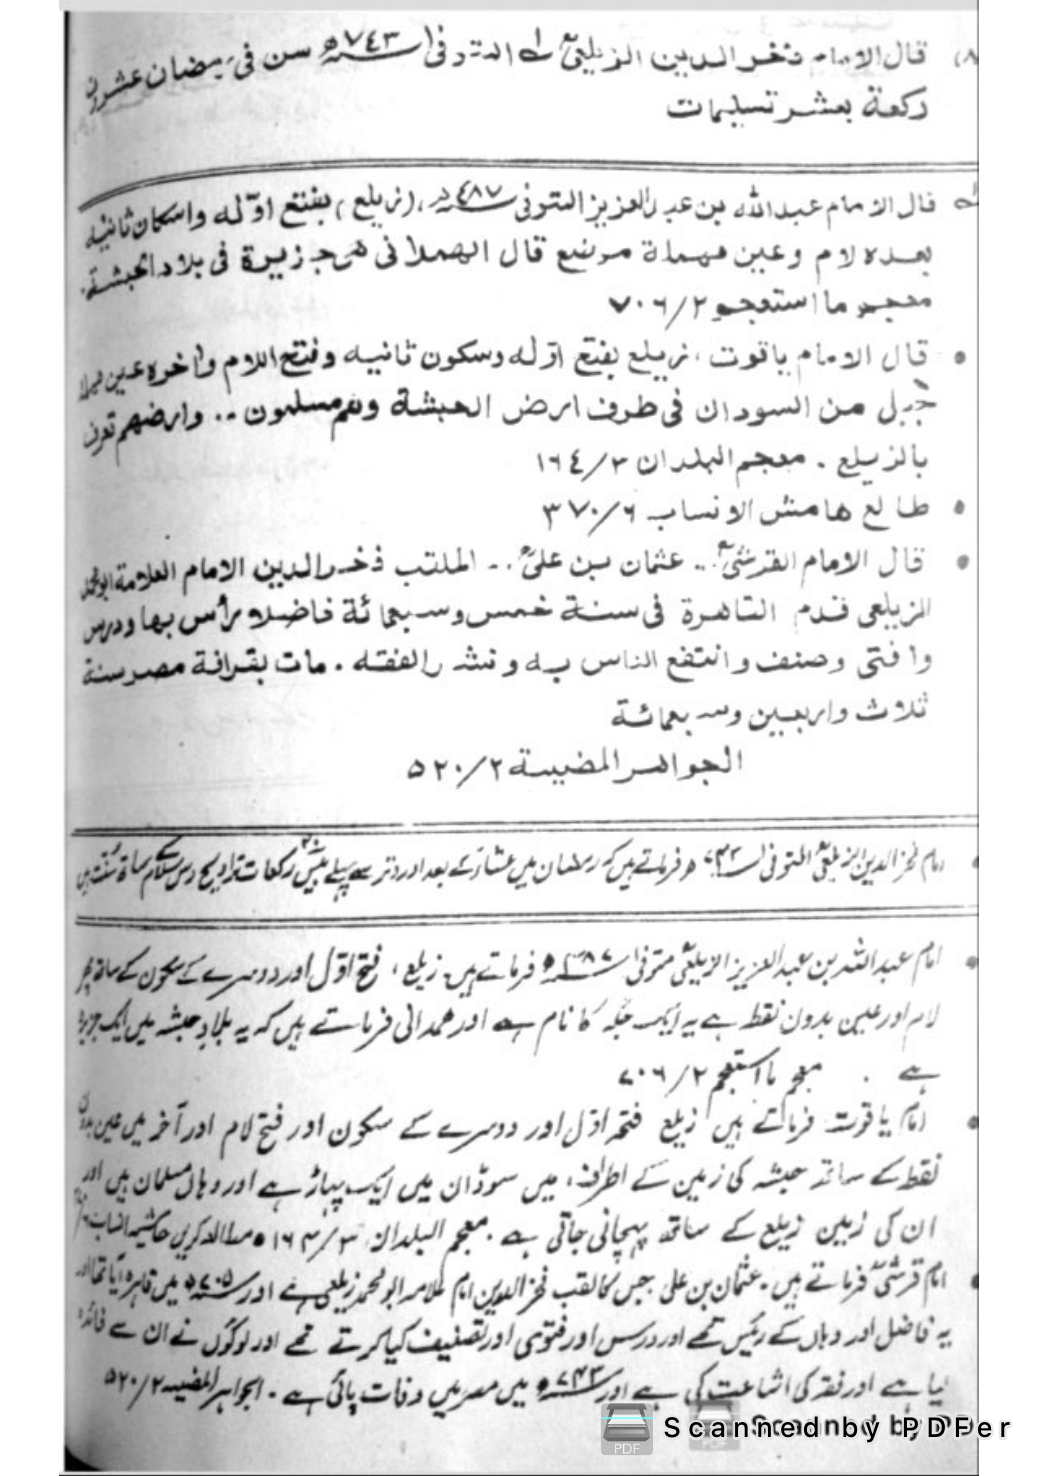 (٨) قال الامام فخر الدين الزيلعيؒ المتوفى ٧٤٣ھ سن فى رمضان عشرون
ركعة بعشر تسليمات
قال الامام عبدالله بن عبدالعزيز المتوفى ٤٨٧ھ، (زيلع) بفتح اوّله واسكان ثانيه
بعده لام وعين مهملة موضع قال الهمدانى هى جزيرة فى بلاد الحبشة.
معجم ما استعجم ٧٠٦/٢
• قال الامام ياقوت، زيلع بفتح اوّله وسكون ثانيه وفتح اللام واخره عين مهملة
جبل من السودان فى طرف ارض الحبشة وهم مسلمون .. وارضهم تعرف
بالزيلع . معجم البلدان ١٦٤/٣
• طالع هامش الانساب ٣٧٠/٦
• قال الامام القرشىؒ .. عثمان بن علىؒ .. الملقب فخرالدين الامام العلامة ابو محمد
الزيلعى قدم القاهرة فى سنة خمس وسبعمائة فاضلا رأس بها ودرس
وافتى وصنف وانتفع الناس به ونشر الفقه . مات بقرافة مصر سنة
ثلاث واربعين وسبعمائة
الجواهر المضيية ٥٢٠/٢
• امام فخرالدین الزیلعیؒ المتوفی ٧٤٣ھ فرماتے ہیں کہ رمضان میں عشاء کے بعد اور وتر سے پہلے بیس ٢٠ رکعات تراویح دس سلام کے ساتھ سنت ہیں
• امام عبداللہ بن عبدالعزیز الزیلعیؒ متوفی ٤٨٧ھ فرماتے ہیں۔ زیلع، فتح اوّل اور دوسرے کے سکون کے ساتھ پھر
لام اور عین بدون نقط ہے یہ ایک جگہ کا نام ہے اور ہمدانی فرماتے ہیں کہ یہ بلادِ حبشہ میں ایک جزیرہ
ہے . معجم ما استعجم ٧٠٦/٢
• امام یاقوت فرماتے ہیں زیلع فتحہ اوّل اور دوسرے کے سکون اور فتح لام اور آخر میں عین بدون
نقط کے ساتھ حبشہ کی زمین کے اطراف میں سوڈان میں ایک پہاڑ ہے اور وہاں مسلمان ہیں اور
ان کی زمین زیلع کے ساتھ پہچانی جاتی ہے . معجم البلدان ١٦٤/٣ • مطالعہ کریں حاشیہ انساب
• امام قرشیؒ فرماتے ہیں۔ عثمان بن علی جس کا لقب فخرالدین امام علامہ ابو محمد زیلعی ہے اور ٧٠٥ھ میں قاہرہ آیا تھا اور
یہ فاضل اور وہاں کے رئیس تھے اور درس اور فتوی اور تصنیف کیا کرتے تھے اور لوگوں نے ان سے فائدہ
لیا ہے اور فقہ کی اشاعت کی ہے اور ٧٤٣ھ میں مصر میں وفات پائی ہے ۔ الجواہر المضیہ ٥٢٠/٢
PDF
Scanned by PDFer